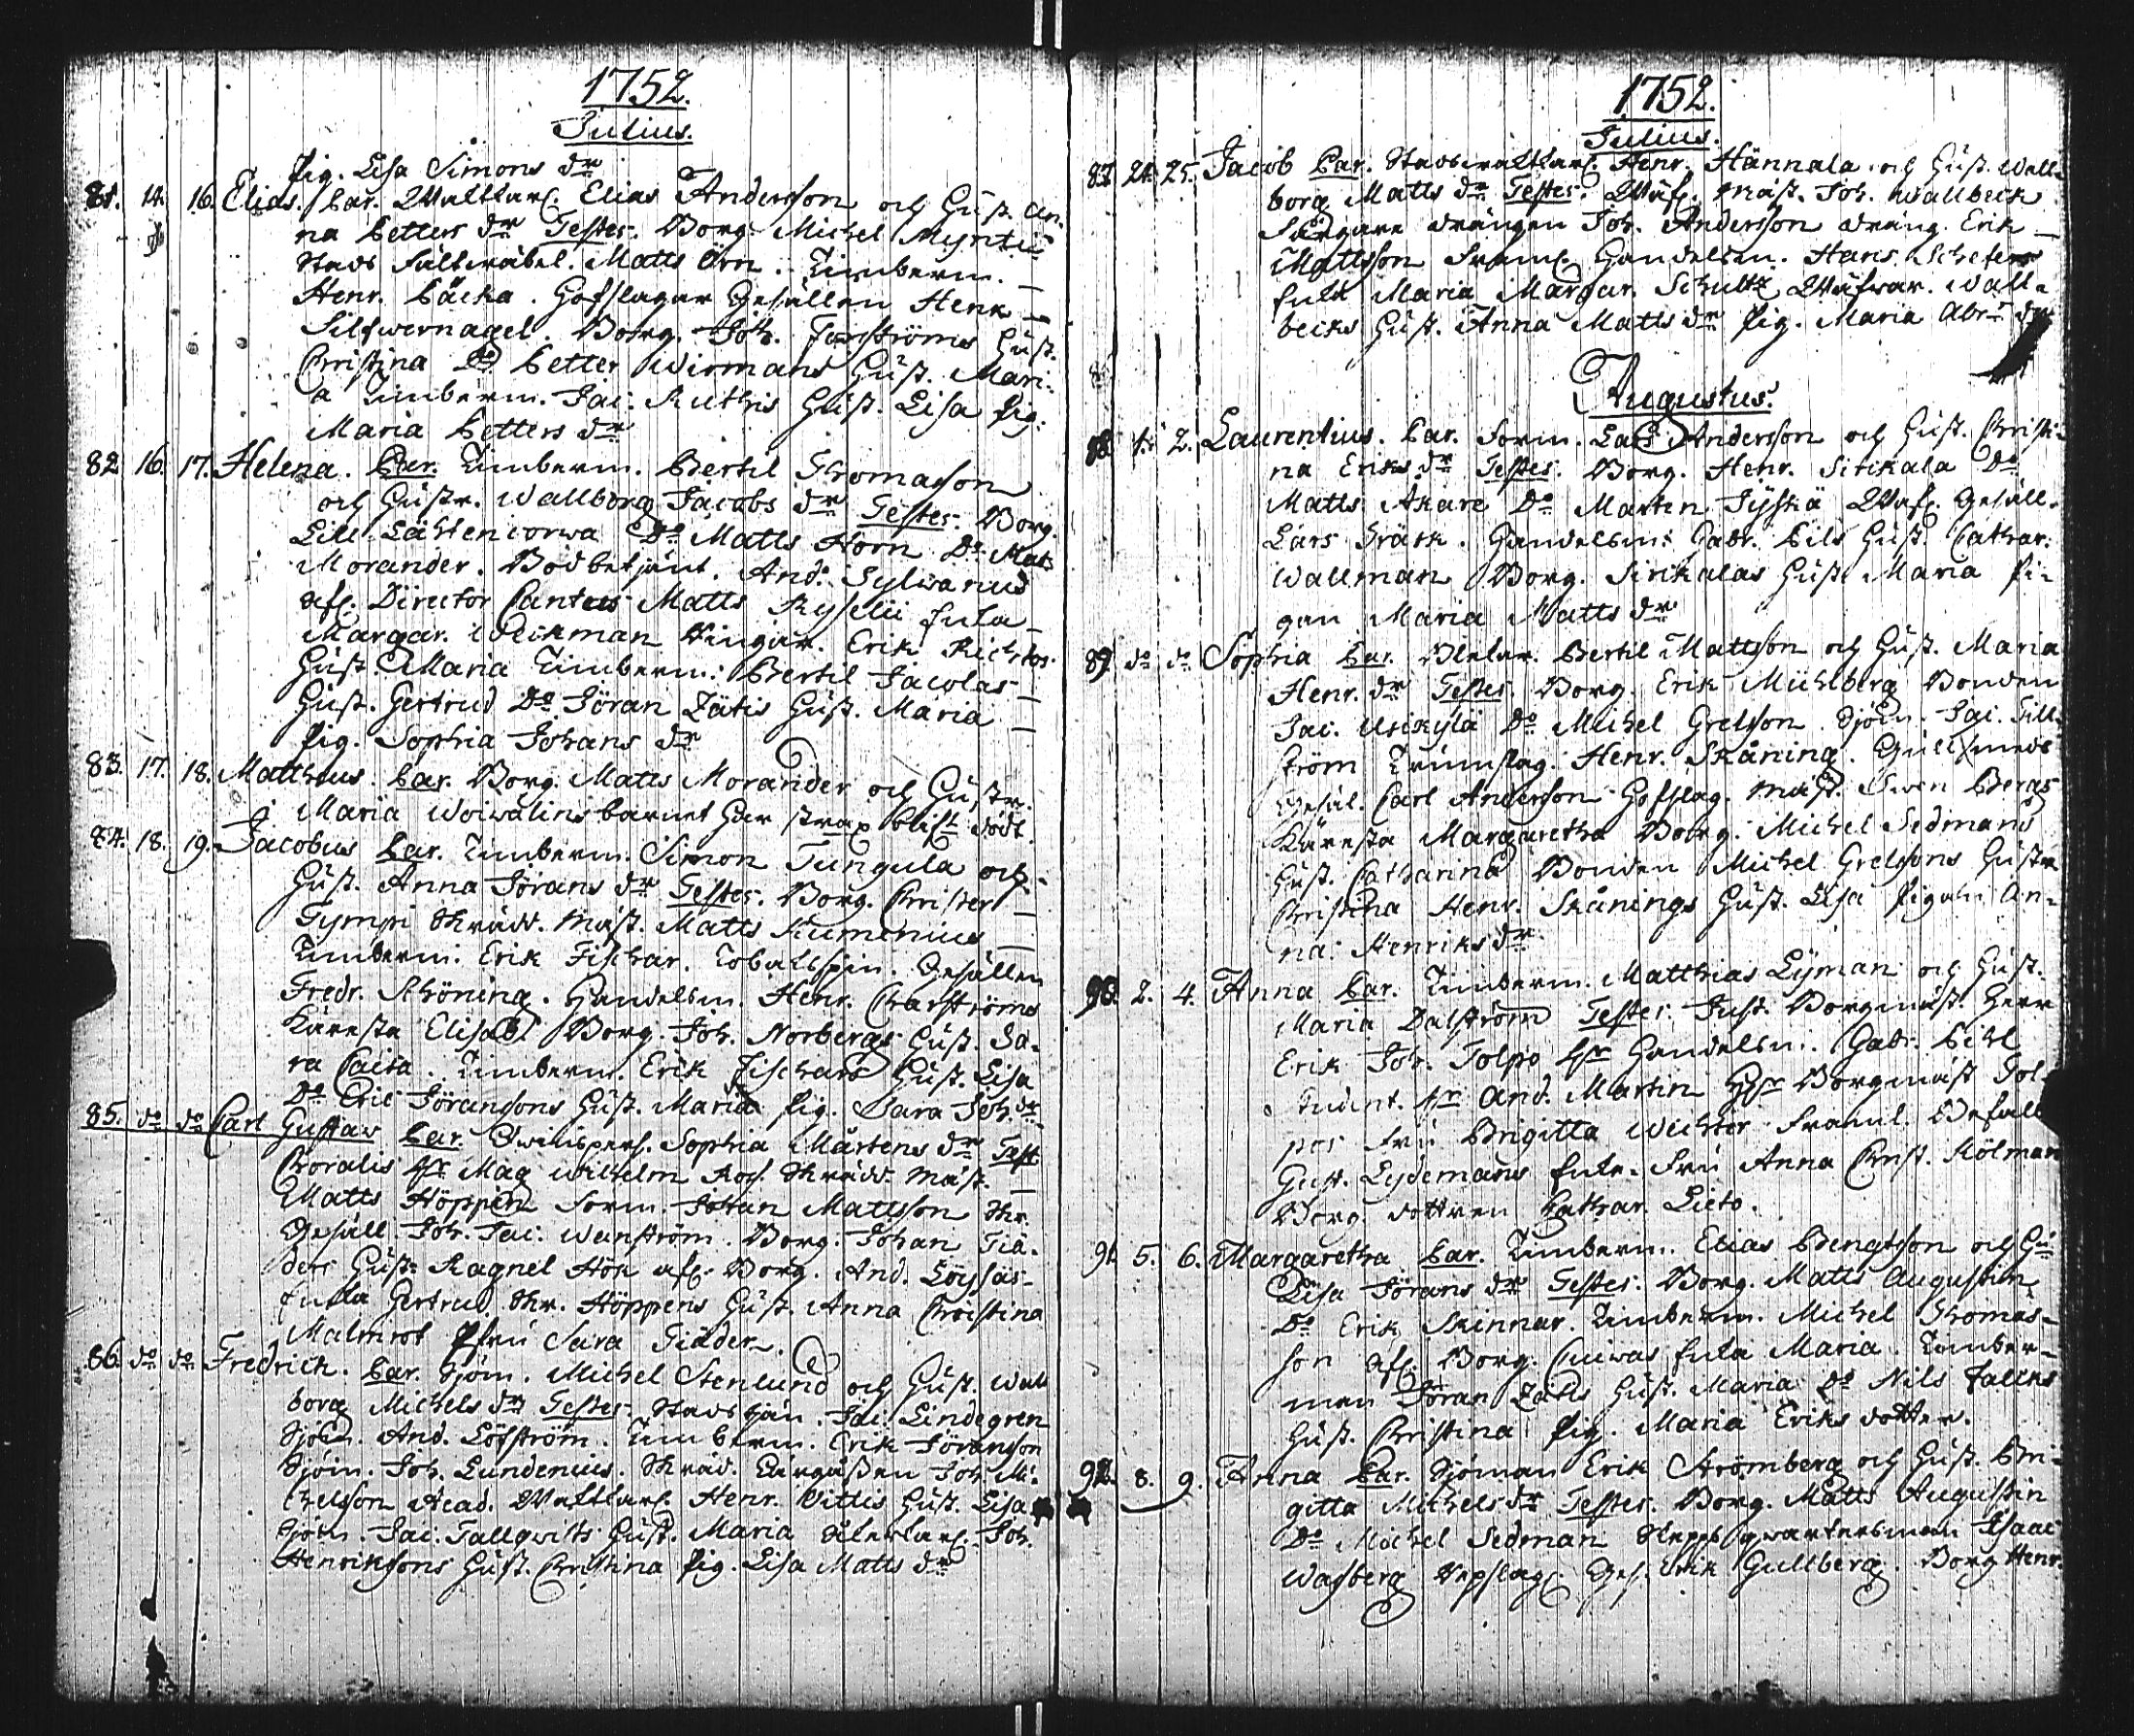 1752.
Julius.
Pig. Lisa Simons dr
81. 14. 16. Elias. Par. Waktkarl. Elias Andersson och Hust. An-
na Petters dr Testes. Borg. Michel Myntti
Stads Fältwäbel. Matts Örn. Timberm.
Henr. Bäcka. Hofslagar Gesällen Henr
Silfwernagel. Borg. Joh. Forsströms Hust.
Christina Do Petter Wirmans Hust. Mari-
a Timberm. Jac. Ruthis Hust. Lisa Pig.
Maria Petters dr
82 16. 17. Helena. Par. Timberm. Bertil Thomasson
och Hustr. Wallborg Jacobs dr Testes. Borg.
Lill Lähtencorwa Do Matts Horn Do Mats
Morander. Bodbetjent. And. Sylwanus
afl. Director Cantus Matts Ryselii Enka
Margar. Weckman Ringar. Erik Richters
Hust. Maria Timberm. Bertil Jacolas
Hust. Gertrud Do Jöran Zätis Hust. Maria
Pig. Sophia Johans dr
83. 17. 18. Mattheus. Par. Borg. Matts Morander och Hustr.
Maria Woiwalin barnet har strax blift dödt.
84. 18. 19. Jacobus Par. Timberm. Simon Tungula och
Hust. Anna Jörans dr Testes. Borg. Christer
Tympi Skrädd. Mäst. Matts Kumenius
Timberm. Erik Fischar. Tobaksspin. Gesällen
Fredr. Schöning. Handelsm. Henr. Charströms
Käresta Elisab. Borg. Joh. Norbergs Hust. Sa-
ra Caisa. Timberm. Erik Fischars Hust. Lisa
Do Eric Jöranssons Hust. Maria Pig. Sara Joh. dr
85. do do Carl Gustav Par. Qwinspers. Sophia Mårtens dr Test.
Choralis Hr Mag Wilhelm Ros. Skrädd. Mäst.
Matts Höppen Form. Johan Mattsson Skr.
Gesäll. Joh. Jac. Wenström. Borg. Johan Tiä-
ders Hust. Ragnel Hök afl. Borg. And. Löysäs
Enka Gertrud. Skr. Höppens Hust. Anna Christina
Malmrot Jfru Sara Tiäder.
86. do do Fredrich. Par. Sjöm. Michel Stenlund och Hust. Wall
borg Michels dr Testes. Stadstjän. Jac. Lindegren
Sjöm. And. Löfström. Timberm. Erik Jöransson
Sjöm. Joh. Lundenius. Skräd. Lärgåssen Joh. Mi-
chelsson Acad. Waktkarl. Henr. Pittis Hust. Lisa
Sjöm. Jac. Tallqwists Hust. Maria Åkerkarl. Joh.
Henrikssons Hust. Christina Pig. Lisa Matts dr
1752.
Julius.
87. 24. 25. Jacob Par. Stadswaktkarl. Henr. Hännälä och Hust. Wall-
borg Matts dr Testes. Wäf. Mäst. Joh. Wallbeck
Färgare drängen Joh. Andersson dräng. Erik
Mattsson Framl. Handelsm. Hans Schefers
Enka Maria Margar. Schultz Wäfwar. Wall-
becks Hust. Anna Matts dr Pig. Maria Abr. dr
Augustus.
88. 1. 2. Laurentius. Par. Form. Lars Andersson och Hust. Christi-
na Eriks dr Testes. Borg. Henr. Sirikala Do
Matts Akare Do Marten Jyskä Wäf. Gesäll.
Lars Träsk. Handelsm. Gabr. Bils Hust. Cathar.
Wallman Borg. Sirikalas Hust. Maria Pi-
gan Maria Matts dr
89. do do Sophia Par. Bertil Mattsson och Hust. Maria
Henr. dr Testes. Borg. Erik Mühlberg Bonden
Jac. Urikylä Do Michel Grelsson Sjöm. Jac. Till-
ström Trumslag. Henr. Skåning. Gullsmeds
Gesäl. Carl Andersson Hofslag. Mäst. Swen Bergs
Käresta Margaretha Borg. Michel Sedmans
Hust. Catharina Bonden Michel Grelssons Hustr
Christina Henr. Skånings Hust. Lisa Pigan An-
na Henriks dr.
90. 2. 4. Anna Par. Timberm. Matthias Lyman och Hust.
Maria Dalström Testes. Just. Borgmäst. Herr
Erik Joh. Tolpo Hr Handelsm. Gabr. Bihl
Student. Hr And. Martin Hr Borgmäst Tol-
pos Fru Brigitta Wichter Framl. Befallm
Gust. Lydemans Enka. Fru Anna Christ. Mölman
Borg. dottren Cathar. Lieto.
91. 5. 6. Margaretha Par. Timberm. Elias Bengtsson och Hu
Lisa Jörans dr Testes. Borg. Matts Augustin
Do Erik Skinnar. Timberm. Michel Thomas-
son afl. Borg. Cuiwas Enka Maria. Timber-
man Jöran Zätis Hust. Maria Do Nils Falcks
Hust. Christina Pig. Maria Eriks dotter.
92. 8. 9. Anna Par. Sjöman Erik Strömberg och Hust. Bri-
gitta Michels dr Testes. Borg. Matts Augustin
Do Michel Sedman Skepps qwartersman Isaac
Wasberg Repslag. Ges. Erik Gullberg. Borg Henr.